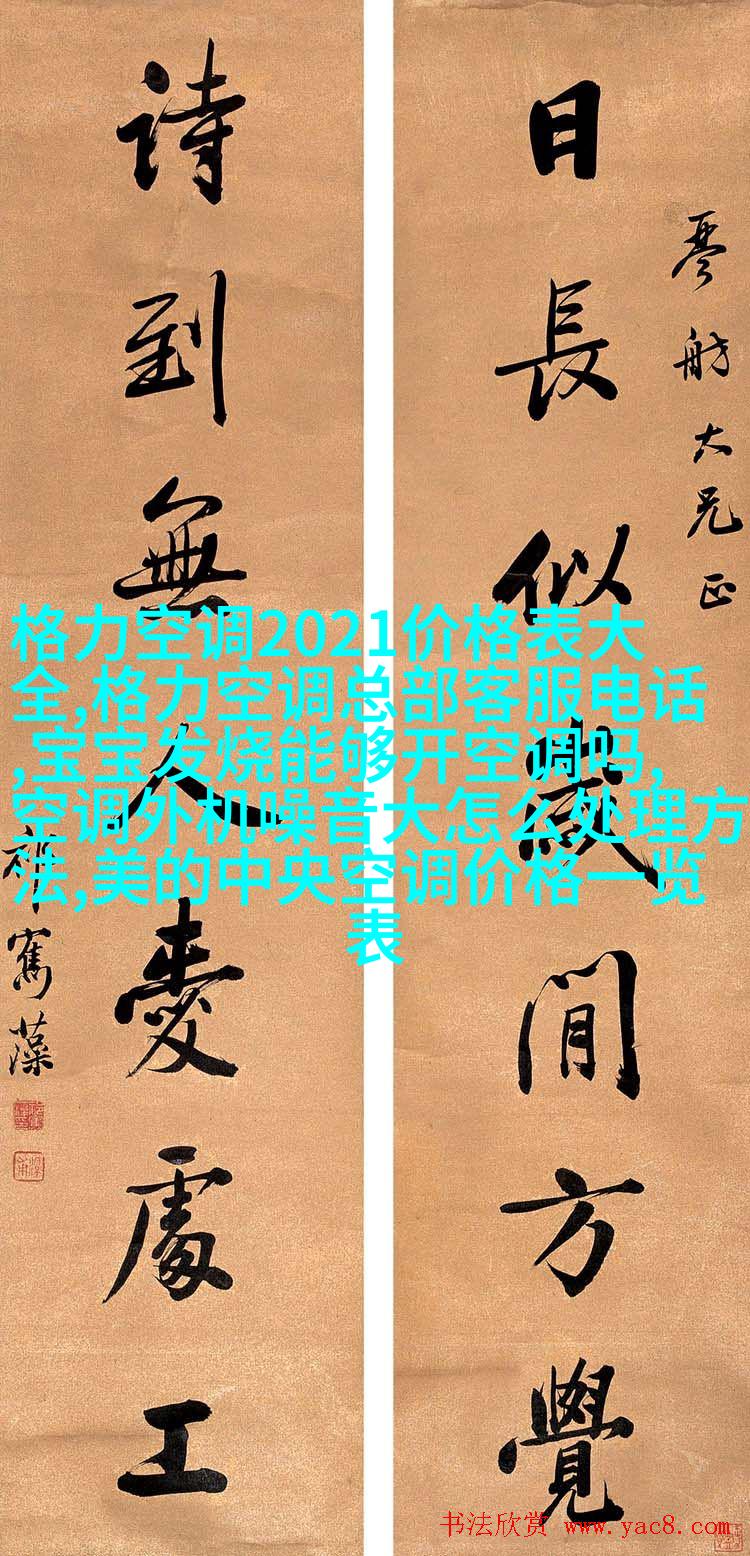 琴舫大兄正
日長似歲閒方覺
詩到無人愛處工
祁寯藻
格力空调2021价格表大
全,格力空调总部客服电话
,宝宝发烧能够开空调吗,
空调外机噪音大怎么处理方
法,美的中央空调价格一览
表
书法欣赏 www.yac8.com